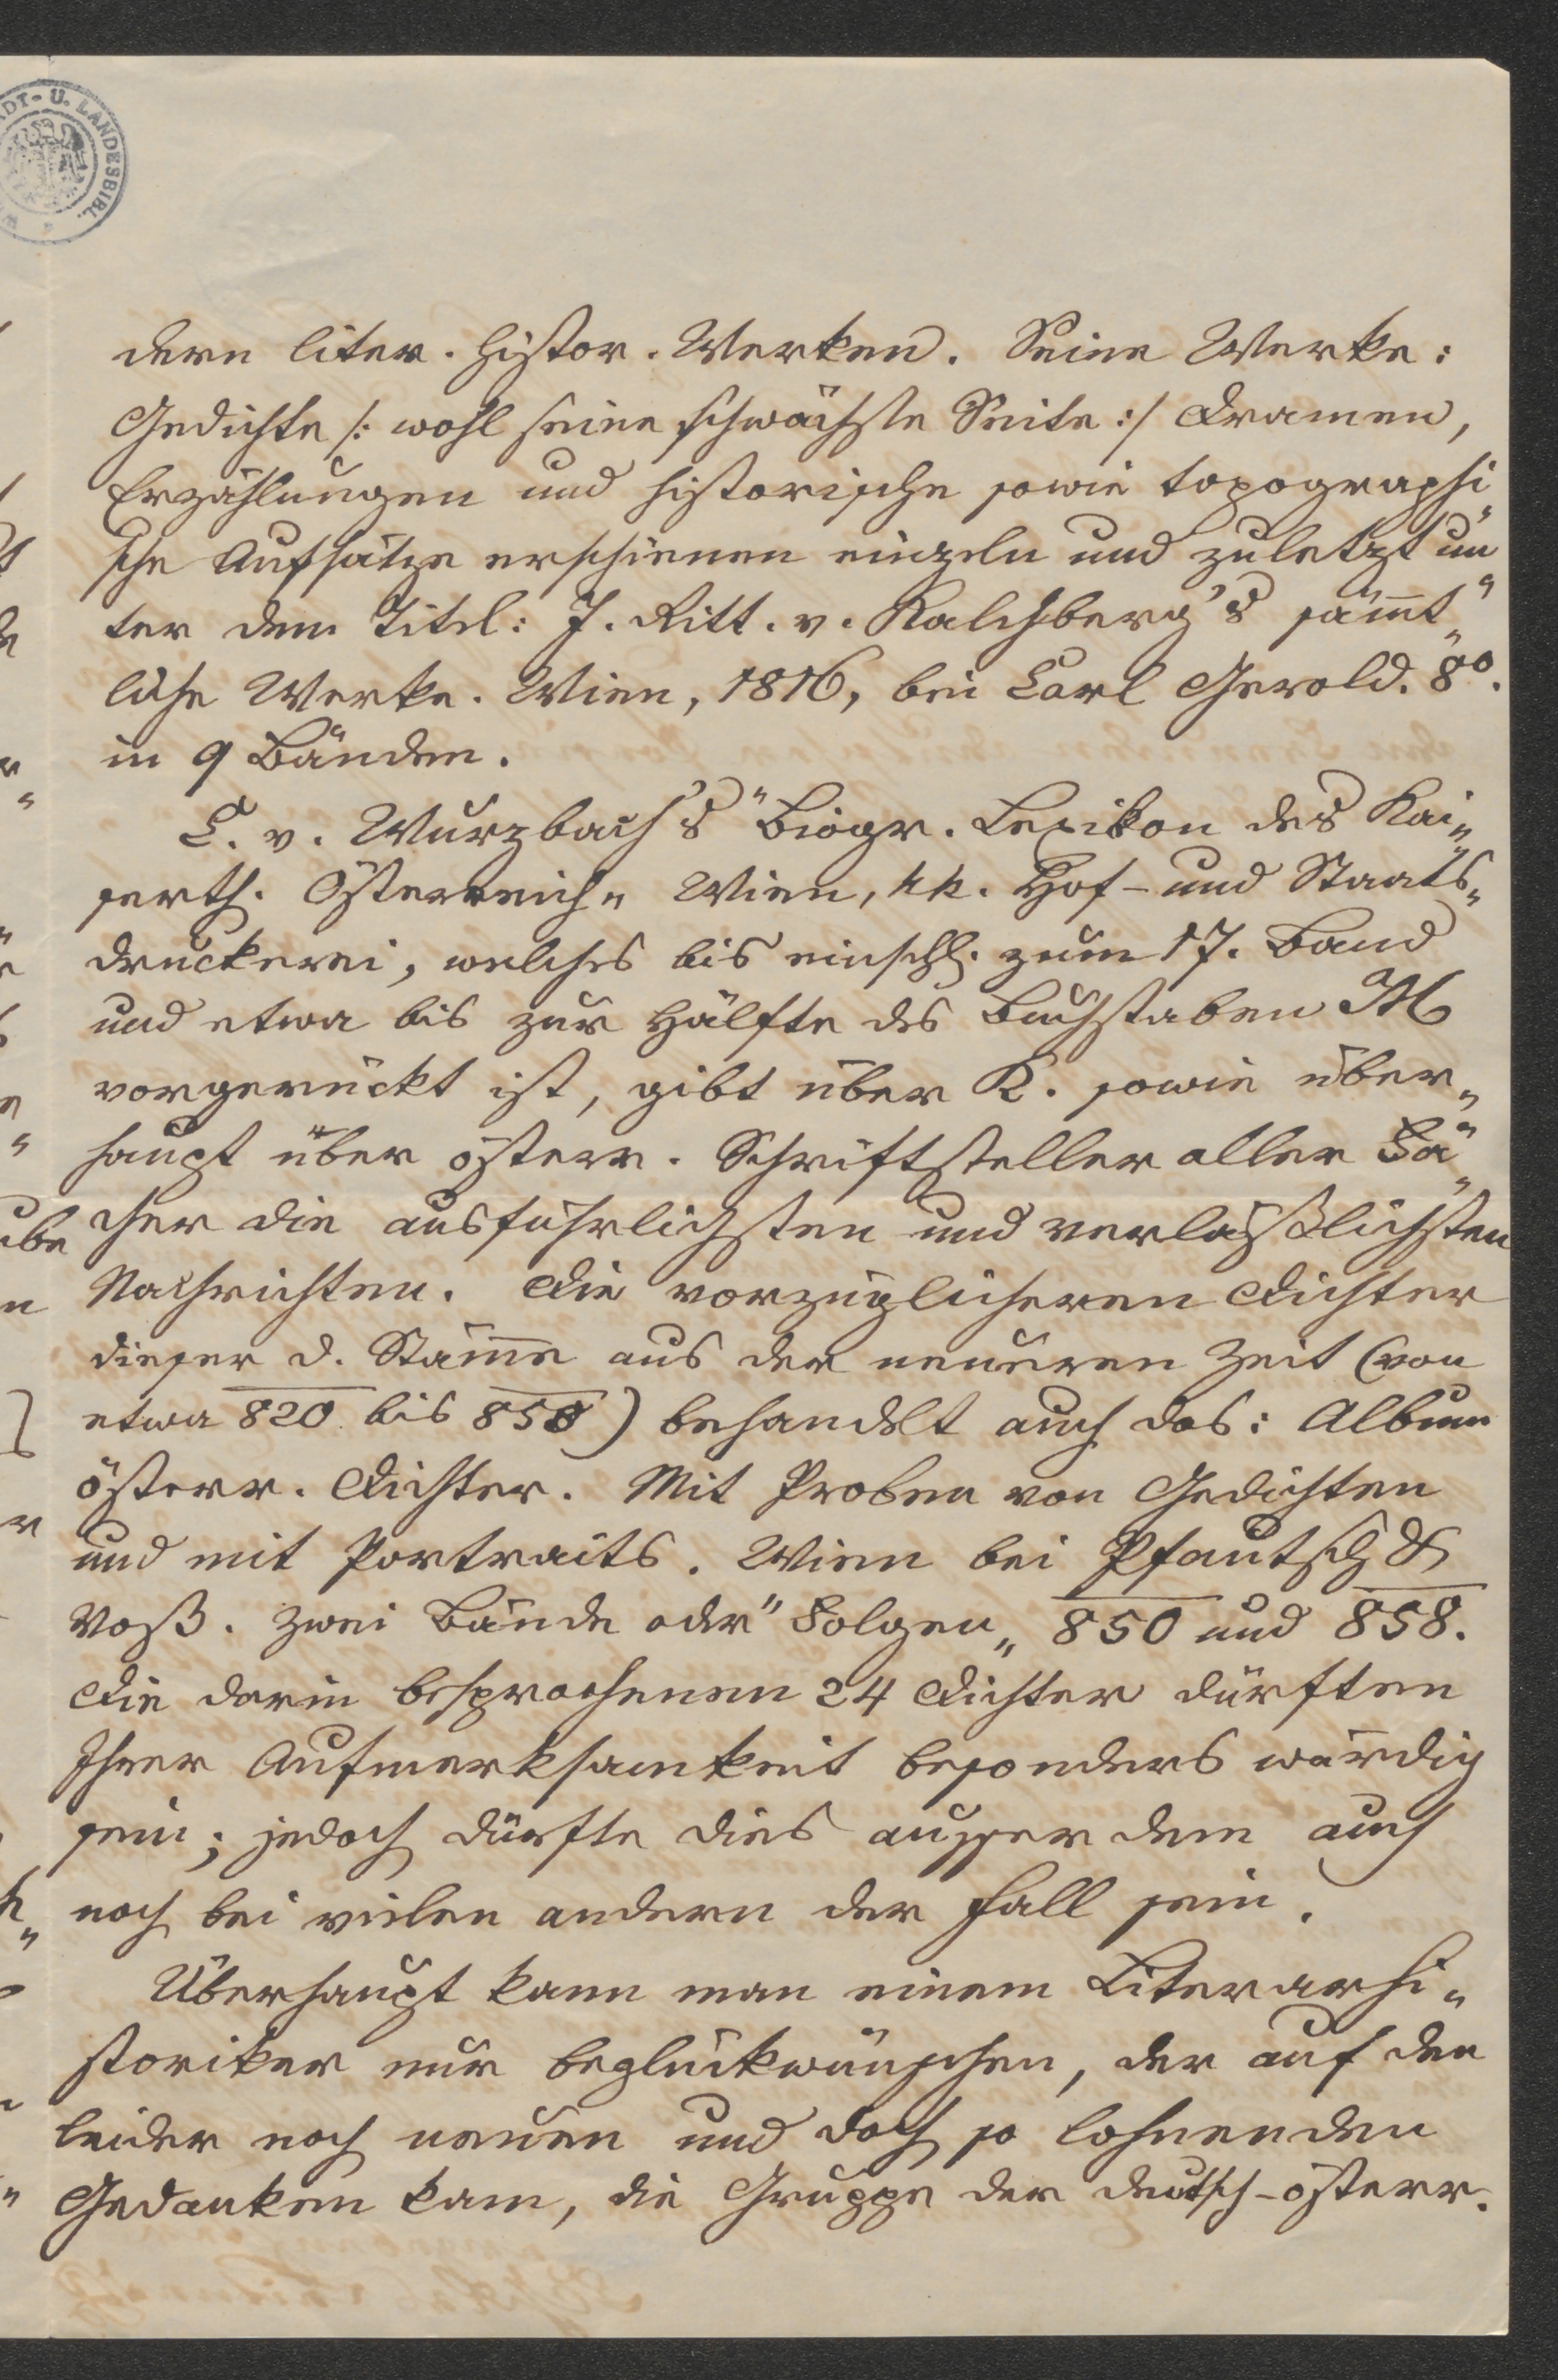 dern liter. histor. Werken. Seine Werke:
Gedichte /: wohl seine schwächste Seite :/ Dramen,
Erzählungen und historische sowie topographi„
sche Aufsätze erschienen einzeln und zuletzt un„
ter dem Titel: J. Ritt. v. Kalchberg's sämt„
liche Werke. Wien, 1816, bei Carl Gerold. 8°.
in 9 Bänden.
C. v. Wurzbach's "Biogr. Lexikon des Kai„
serth. Österreich„ Wien, kk. Hof- und Staats„
druckerei, welches bis einschl. zum 17. Band
und etwa bis zur Hälfte des Buchstaben M
vorgerückt ist, gibt über K. sowie über„
haupt über österr. Schriftsteller aller Fä„
cher die ausführlichsten und verläßlichsten
Nachrichten. Die vorzüglicheren Dichter
dieser d. Stäme aus der neueren Zeit (von
etwa 820 bis 850) behandelt auch das: Album
österr. Dichter. Mit Proben von Gedichten
und mit Portraits. Wien bei Pfautsch &
Voß. Zwei Bände oder "Folgen„ 850 und 858.
Die darin besprochenen 24 Dichter dürften
Ihrer Aufmerksamkeit besonders würdig
sein; jedoch dürfte dies ausser dem auch
noch bei vielen andern der Fall sein.
Überhaupt kann man einem Literarhi„
storiker nur beglückwünschen, der auf den
leider noch neuen und doch so lohnenden
Gedanken kam, die Gruppe der deutsch-österr.